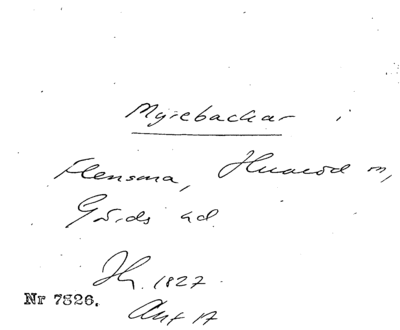 Myrebackar i
Flensma, Huaröd sn,
Gärds hd
H. 1827
Nr 7526.
Akt 17